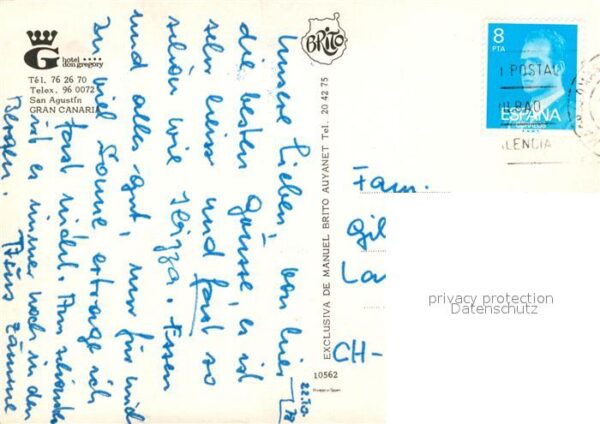 G hotel don gregory ****
Tél. 76 26 70
Telex. 96 0072
San Agustín
GRAN CANARIA
BRITO
8
PTA
POSTAL
BILBAO
ESPAÑA
CORREOS
LENCIA
Unsere Lieben, von hier
die besten Grüsse, es ist
sehr heiss und fast so
schön wie Ibiza. Essen
und alles gut, nur für mich
zu viel Sonne ertrage ich
fast nicht. Am schönsten
ist es immer noch in den
Bergen.
Tschüss zäme
22.10.78
EXCLUSIVA DE MANUEL BRITO AUYANET Tel. 20 42 75
10562
Printed in Spain
Fam.
Gil
La
CH-
privacy protection
Datenschutz